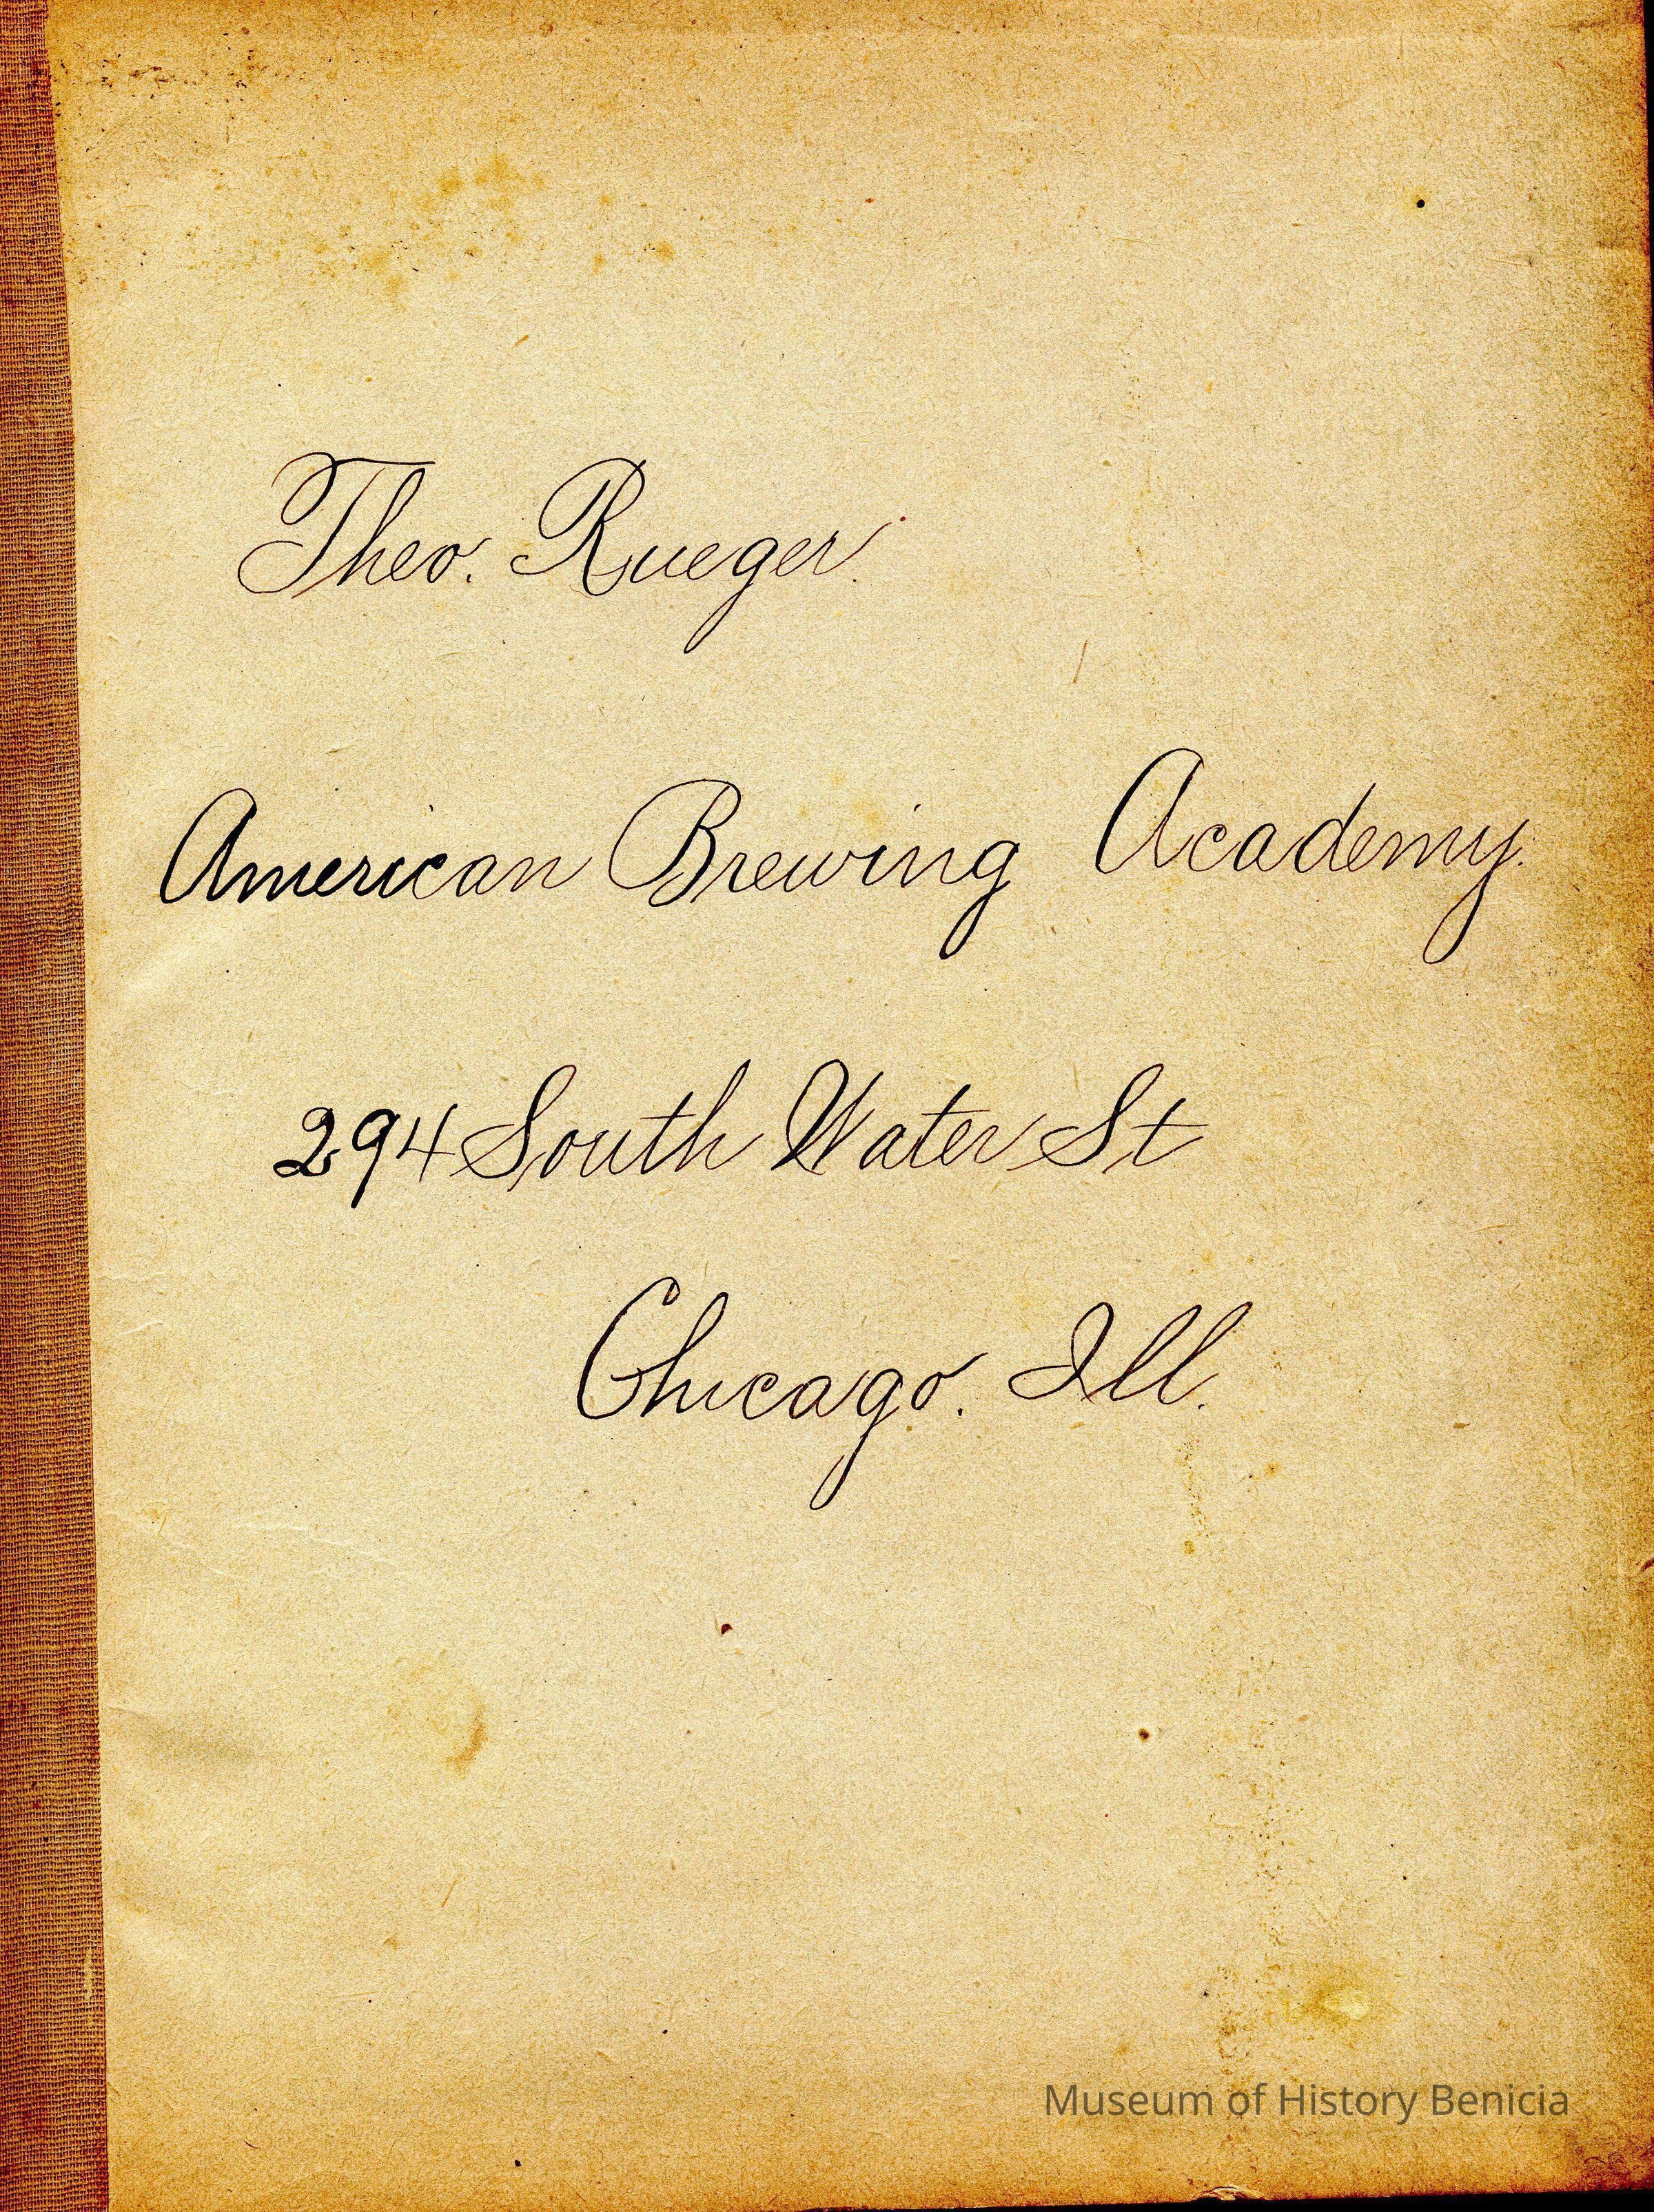 Theo. Rueger.
American Brewing Academy.
294 South Water St
Chicago. Ill.
Museum of History Benicia